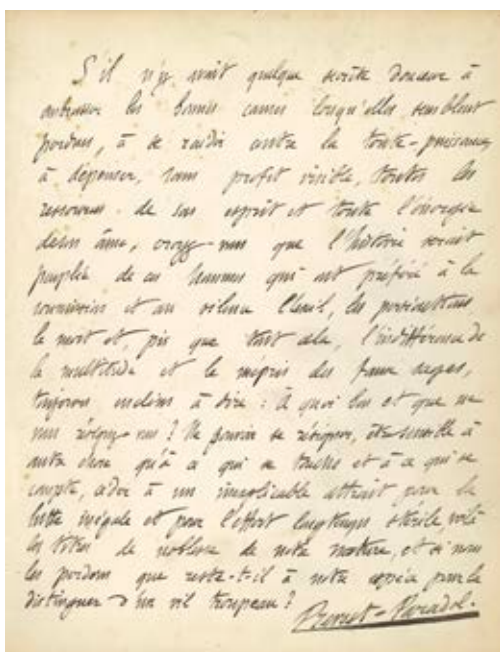 S'il n'y avait quelque secrète douceur à
embrasser les bonnes causes lorsqu'elles semblent
perdues, à se raidir contre la toute-puissance,
à dépenser, sans profit visible, toutes les
ressources de son esprit et toute l'énergie
de son âme, croyez-vous que l'histoire serait
peuplée de ces hommes qui ont préféré à la
soumission et au silence l'exil, les persécutions
la mort et, pis que tout cela, l'indifférence de
la multitude et le mépris des faux sages,
toujours enclins à dire : À quoi bon et que ne
vous résignez-vous ? Ne pouvoir se résigner, être sensible à
autre chose qu'à ce qui se touche et à ce qui se
compte, céder à un inexplicable attrait pour la
lutte inégale et pour l'effort longtemps stérile, voilà
les titres de noblesse de notre nature, et si nous
les perdons que reste-t-il à notre espèce pour la
distinguer d'un vil troupeau ?
Prevost-Paradol.